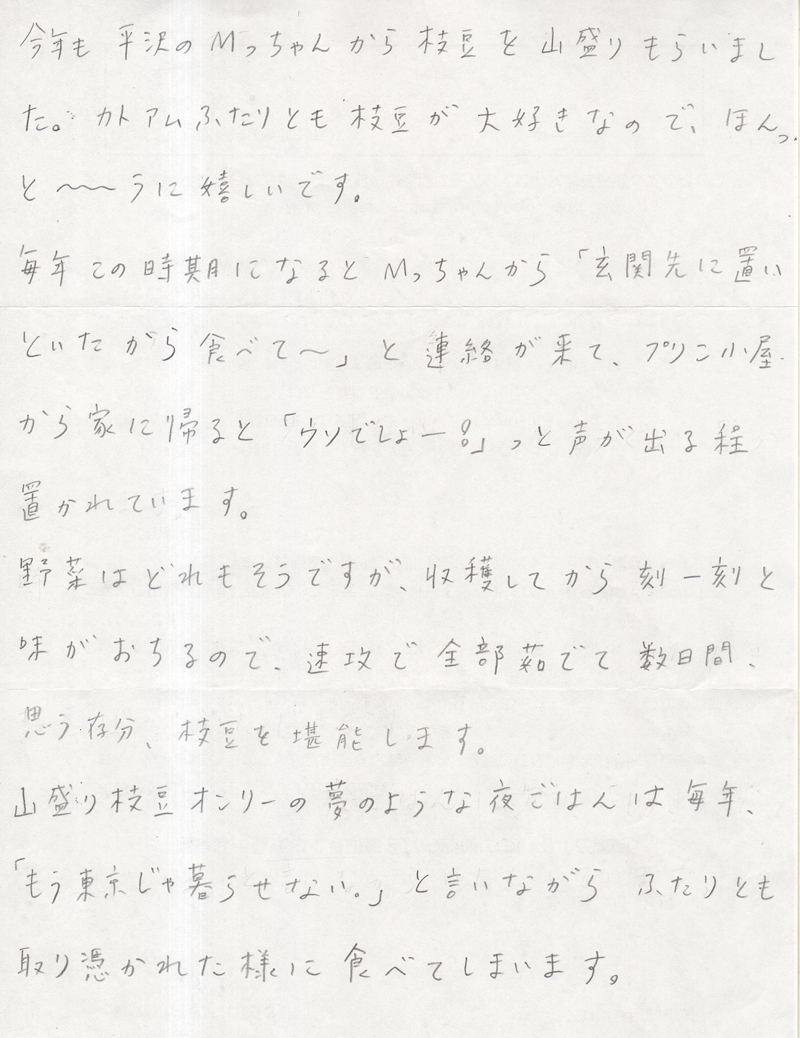 今年も 平沢の Mっちゃん から 枝豆を 山盛り もらいまし
た。 カトアム ふたりとも 枝豆が 大好きなので、ほんっ
と〜〜うに 嬉しいです。
毎年 この 時期になると Mっちゃんから 「玄関先に 置い
といたがら 食べて〜」と 連絡が来て、プリン小屋
から 家に帰ると 「ウソでしょー!?」っと声が出る程
置かれています。
野菜はどれもそうですが、収穫してから 刻一刻と
味がおちるので、速攻で 全部茹でて 数日間、
思う存分、枝豆を 堪能します。
山盛り枝豆オンリーの夢のような夜ごはんは毎年、
「もう東京じゃ暮らせない。」と言いながら ふたりとも
取り憑かれた様に 食べてしまいます。